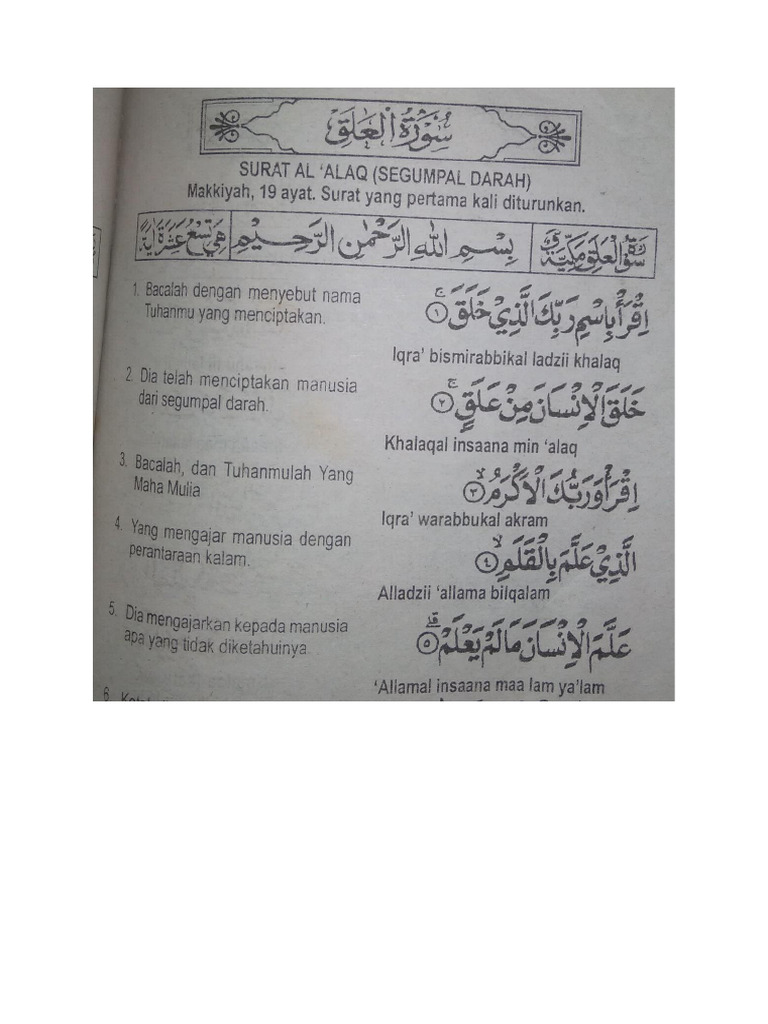 سُوْرَةُ الْعَلَقِ
SURAT AL ‘ALAQ (SEGUMPAL DARAH)
Makkiyah, 19 ayat. Surat yang pertama kali diturunkan.
بِسْمِ اللهِ الرَّحْمٰنِ الرَّحِيْمِ
هِيَ تِسْعَ عَشْرَةَ اٰيَةً
1. Bacalah dengan menyebut nama
Tuhanmu yang menciptakan.
اِقْرَأْ بِاسْمِ رَبِّكَ الَّذِيْ خَلَقَۚ ۝١
Iqra’ bismirabbikal ladzii khalaq
2. Dia telah menciptakan manusia
dari segumpal darah.
خَلَقَ الْاِنْسَانَ مِنْ عَلَقٍۚ ۝٢
Khalaqal insaana min ‘alaq
3. Bacalah, dan Tuhanmulah Yang
Maha Mulia
اِقْرَأْ وَرَبُّكَ الْاَكْرَمُۙ ۝٣
Iqra’ warabbukal akram
4. Yang mengajar manusia dengan
perantaraan kalam.
الَّذِيْ عَلَّمَ بِالْقَلَمِۙ ۝٤
Alladzii ‘allama bilqalam
5. Dia mengajarkan kepada manusia
apa yang tidak diketahuinya.
عَلَّمَ الْاِنْسَانَ مَا لَمْ يَعْلَمْۗ ۝٥
‘Allamal insaana maa lam ya’lam
6.